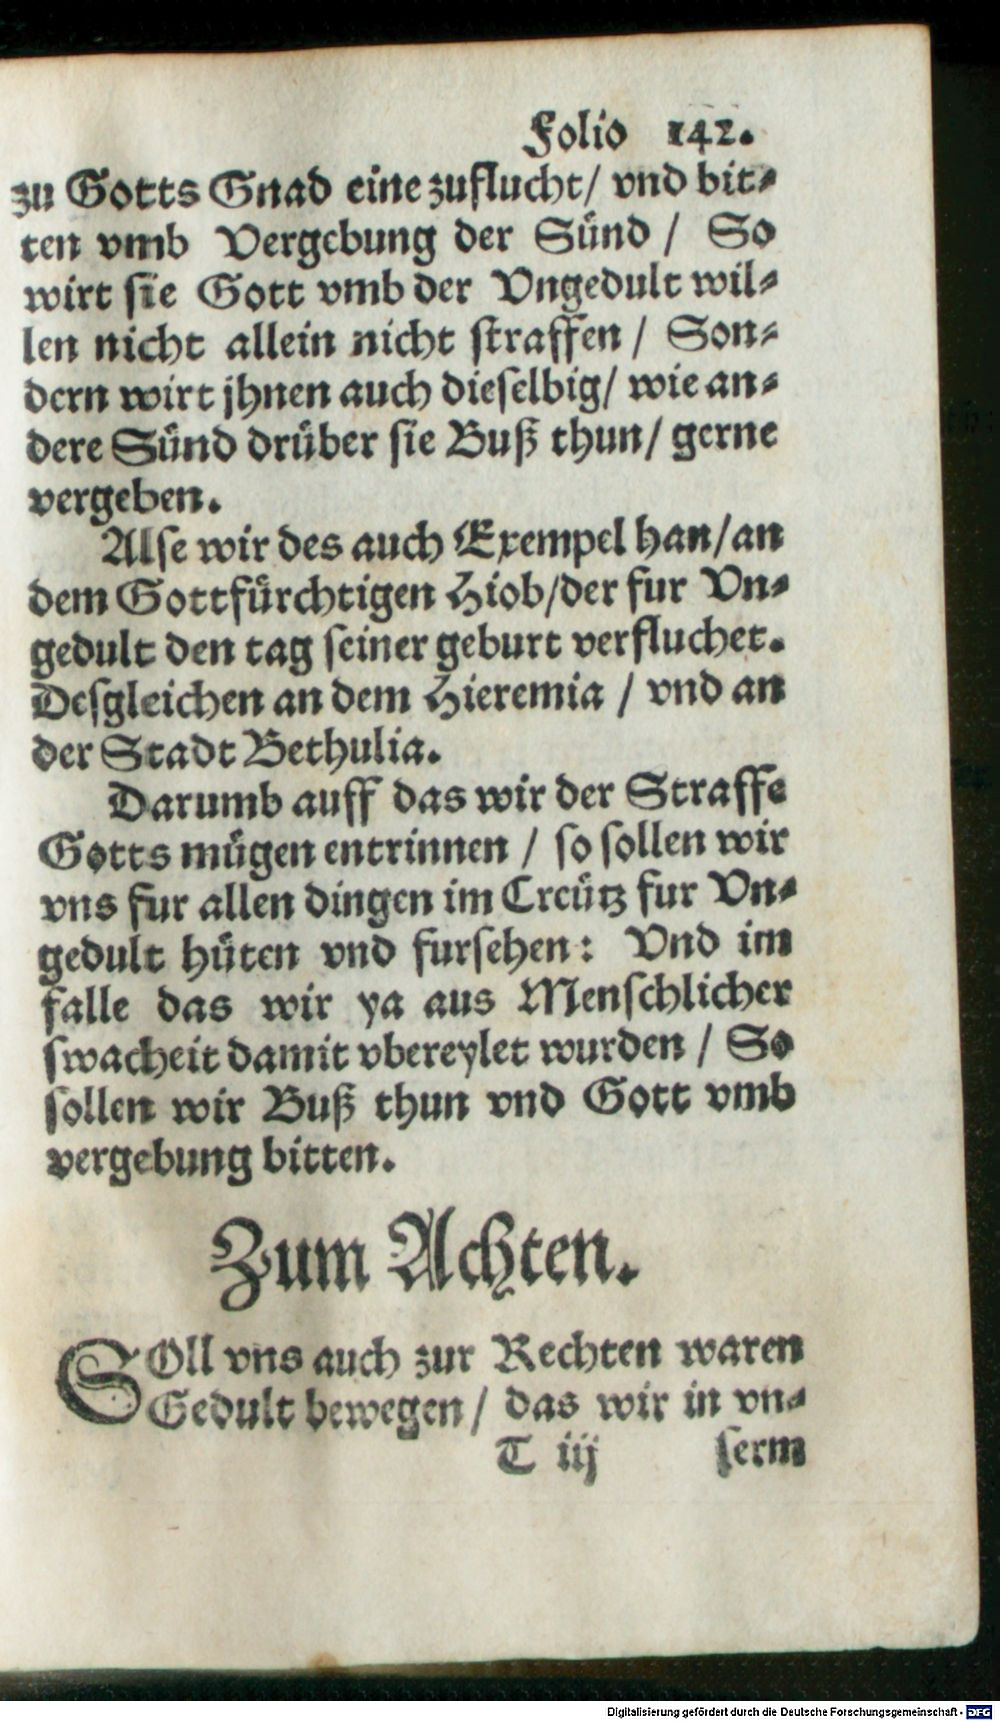 Folio 142.
zu Gotts Gnad eine zuflucht/ vnd bit⸗
ten vmb Vergebung der Sünd / So
wirt sie Gott vmb der Vngedult wil⸗
len nicht allein nicht straffen / Son⸗
dern wirt jhnen auch dieselbig/ wie an⸗
dere Sünd drüber sie Buß thun/ gerne
vergeben.
Alse wir des auch Exempel han/an
dem Gottfürchtigen Hiob/der fur Vn⸗
gedult den tag seiner geburt verfluchet.
Desgleichen an dem Hieremia / vnd an
der Stadt Bethulia.
Darumb auff das wir der Straffe
Gotts mügen entrinnen / so sollen wir
vns fur allen dingen im Creütz fur Vn⸗
gedult hüten vnd fursehen: Vnd im
falle das wir ya aus Menschlicher
swacheit damit vbereylet wurden / So
sollen wir Buß thun vnd Gott vmb
vergebung bitten.
Zum Achten.
SOll vns auch zur Rechten waren
Gedult bewegen/ das wir in vn⸗
T iij serm
Digitalisierung gefördert durch die Deutsche Forschungsgemeinschaft - DFG